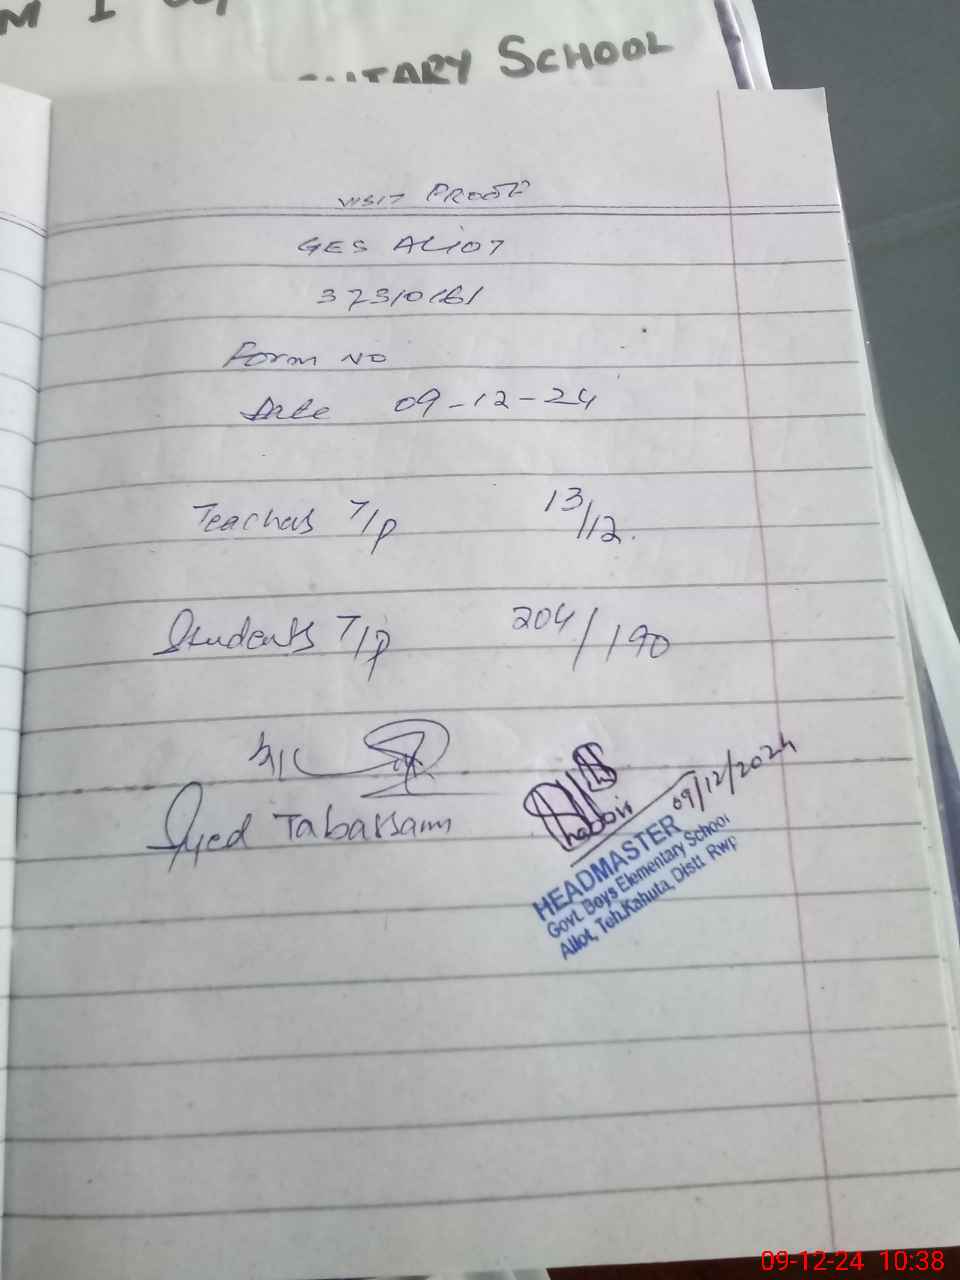 M I
ENTARY SCHOOL
VISIT PROOF
GES ALIOT
37310161
Form NO
Date 09-12-24
Teachers T/P 13/12.
Students T/P 204/190
Syed Tabassam
Shabbir
09/12/2024
HEADMASTER
Govt. Boys Elementary School
Aliot, Teh.Kahuta, Distt. Rwp
09-12-24 10:38